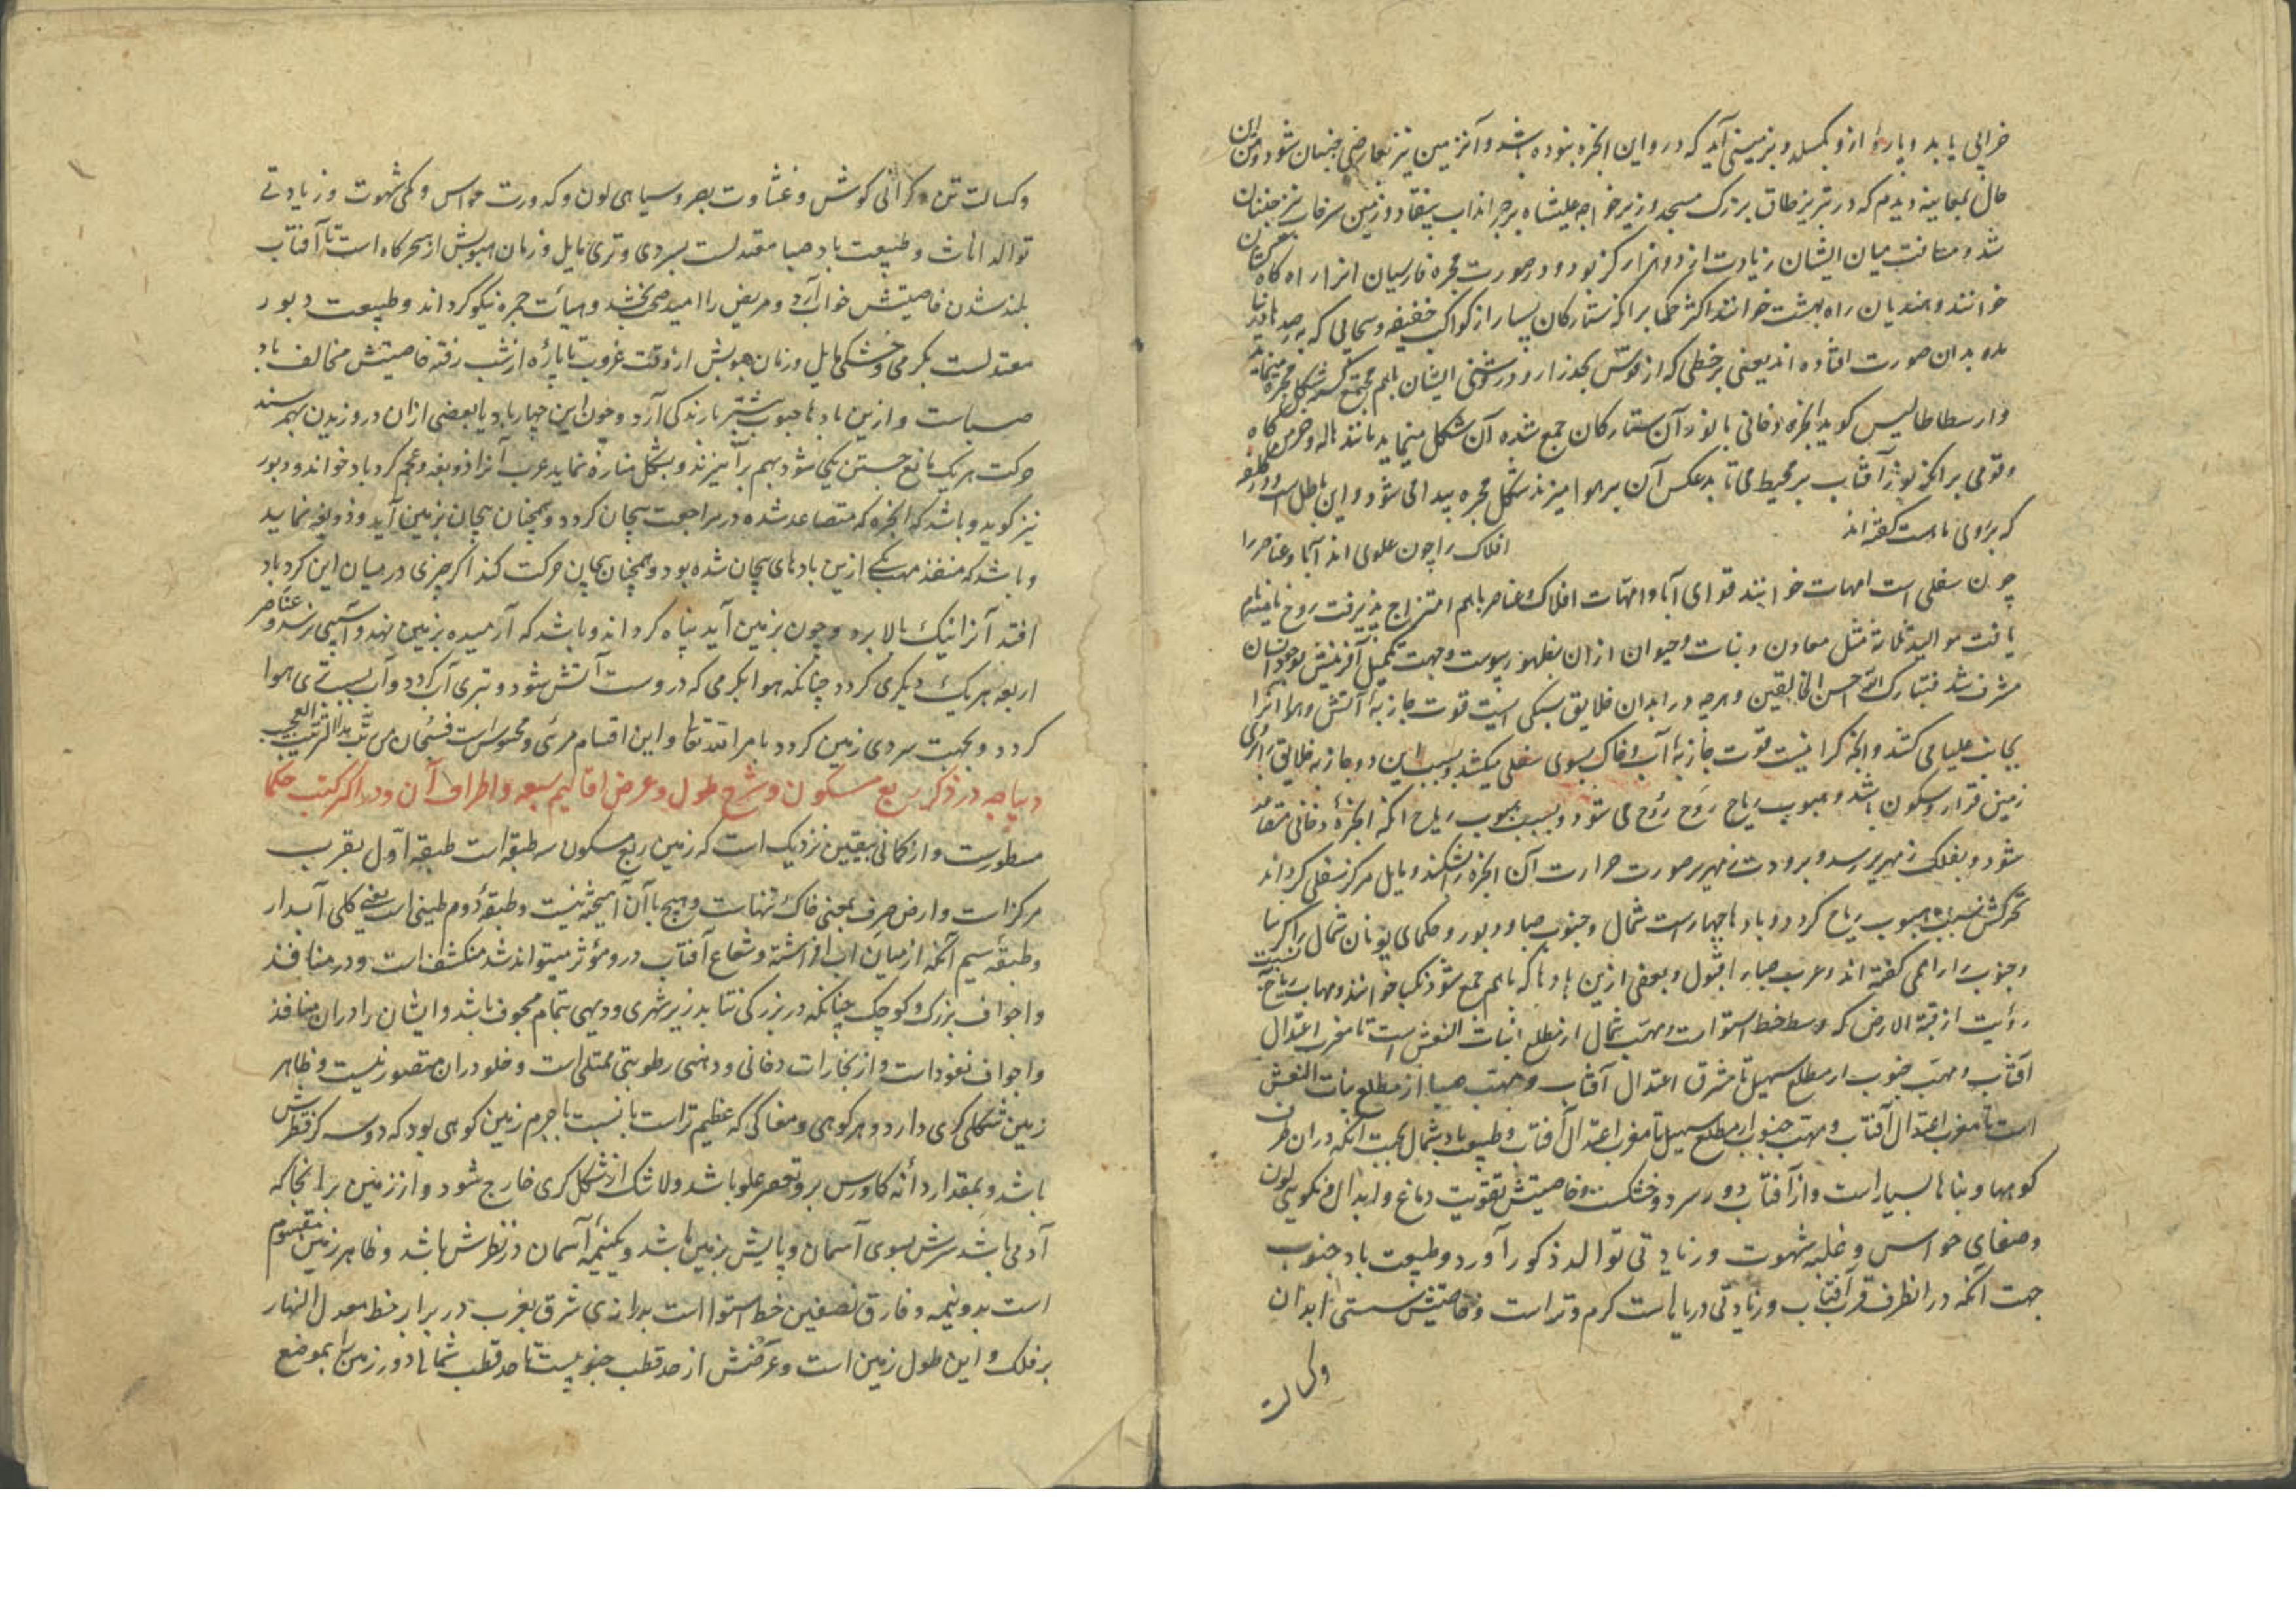 خرابی یابد و باروا ازو بکسلد و بزمینی آید که درو این ابخره نبوده باشد و آنزمین نیز بعارضی جنبان شود و من این
حال بمعاینه دیدم که در تبریز طاق بزرگ مسجد وزیر خواجه علیشاه بر چرانداب بیفتاد و زمین سرخاب نیز جنبان
شد و مسافت میان ایشان زیادت از دو هزار گز بود و در صورت مجره فارسیان انرا راه کاه کشان
خوانند و هندیان راه بهشت خوانند اکثر حکما برانکه ستارکان بسیار از کواکب خفیفه و سحابی که به رصد ها درنیا
مده بدان صورت افتاده اند یعنی بر خطی که از قوس بگذرد و روشنی ایشان باهم مجتمع کشته بشکل مجره مینماید
وارسطاطالیس کوید ابخره دخانی با نور آن ستارکان جمع شده آن شکل مینماید مانند هاله و خرمن ماه
وقومی برانکه نور آفتاب بر محیط می تابد عکس آن بر هوا میزند شکل مجره پیدا می شود و این باطل است
که براوی نادرست کفته اند
افلاک را چون علوی اند آبا و عناصر را
چون سفلی است امهات خوانند قوای آبا و امهات افلاک و عناصر باهم امتزاج پذیرفت روح نامیه نام
یافت موالید ثلاثه مثل معادن و نبات و حیوان ازان بظهور پیوست و جهت تکمیل آفرینش بوجود انسان
مشرف شد فتبارک الله احسن الخالقین و هرچه در ابدان خلایق سبکی است قوت جاذبه آتش و هوا آنرا
بجانب علیا می کشد و انچه کرانیست قوت جاذبه آب و خاک بسوی سفلی میکشد و بسبب این دو جاذبه خلایق را بر روی
زمین قرار و سکون باشد و هبوب ریاح روح روح می شود و بسبب هبوب ریاح انکه ابخره دخانی متصاعد
شود و بفلک زمهریر رسد و برودت زمهریر صورت حرارت آن ابخره بشکند و مایل مرکز سفلی کرداند
تحرکش سبب هبوب ریاح کردد و بادها چهارست شمال و جنوب و صبا و دبور و حکمای یونان شمال را کربیا
و جنوب را رامی کفته اند و عرب صبا را قبول و بعضی ازین بادها که باهم جمع شود نکبا خوانند و مهاب ریاح نسبت
رؤیت از قبة الارض که وسط خط استواست و مهب شمال از مطلع بنات النعش است تا مغرب اعتدال
آفتاب و مهب جنوب از مطلع سهیل تا مشرق اعتدال آفتاب و مهب صبا از مطلع بنات النعش
است تا مغرب اعتدال آفتاب و مهب جنوب از مطلع سهیل تا مغرب اعتدال آفتاب و طبیعت باد شمال بجهت انکه دران طرف
کوهها و بناها بسیار است و از آفتاب دور سرد و خشکست و خاصیتش تقویت دماغ و ابدال و نیکویی لون
و صفای حواس و غلبه شهوت و زیادتی توالد ذکور آورد و طبیعت باد جنوب
جهت آنکه در انطرف قرب آفتاب و زیادتی دریاهاست کرم و تر است و خاصیتش سستی ابدان
وکسالت
وکسالت تن و کرانی کوش و غشاوت بصر و سیاهی لون و کدورت حواس و کمی شهوت و زیادتی
توالد اناث و طبیعت باد صبا معتدلست بسردی و تری مایل و زمان هبوبش از سحرکاه است تا آفتاب
بلند شدن خاصیتش خواب آرد و مریض را امید صحت بخشد و هیأت چهره نیکو کرداند و طبیعت دبور
معتدلست بکرمی و خشکی مایل و زمان هبوبش از وقت غروب تا پارهٔ از شب رفته خاصیتش مخالف باد
صباست و ازین بادها جنوب بیشتر بارندکی آرد و چون این چهار باد یا بعضی ازان در وزیدن بهم رسند
حرکت هریک مانع جستن یکی شود بهم برآمیزند و بشکل مناره نماید عرب آنرا ذوبغه و عجم کردباد خوانند و دبور
نیز کوید و باشد که ابخره که متصاعد شده در مراجعت پیچان کردد و همچنان پیچان بزمین آید و ذوبغه نماید
و باشد که منفذ مهب یکی ازین بادهای پیچان شده بود و همچنان پیچان حرکت کند اکر چیزی در میان این کردباد
افتد آنرا نیک بالا برد و چون بزمین آید تباه کرداند و باشد که آرمیده بزمین نهد و آسیبی نرسد و عناصر
اربعه هریک دیکری کردد چنانکه هوا بکرمی که دروست آتش شود و بتری آب کردد و آب بسستی هوا
کردد و بجهت سردی زمین کردد بامر الله تعالی و این اقسام مرئی و محسوس است فسبحان من رتب بهذا الترتیب العجیب
دیباجه در ذکر ربع مسکون و شرح طول و عرض اقالیم سبعه و اطراف آن و در اکثر کتب حکما
مسطورست و ارکانی بیقین نزدیک است که زمین ربع مسکون سه طبقه است طبقه اول بقرب
مرکز است و ارض صرف یعنی خاک تنهاست و هیچ باآن آمیخته نیست و طبقه دوم طینی است یعنی کلی آبدار
و طبقه سیم آنکه از میان آب افراشته و شعاع آفتاب درو مؤثر میتواند شد منکشف است و در منافذ
و اجواف بزرک و کوچک چنانکه در بزرکی نتا بد زیر شهری و دیهی بتمام مجوف باشد و ایشان را دران منافذ
و اجواف نفوذ است و از بخارات دخانی و دهنی رطوبتی ممتلی است و خلو دران متصور نیست و ظاهر
زمین شکلی کری دارد و هر کوهی و مغاکی که عظیم تر است بانسبت با جرم زمین کوهی بود که دو سه کز قطرش
باشد و بمقدار دانه کاورس برو تقعر و علو باشد ولاشک از شکل کری خارج شود و از زمین هرانجا که
آدمی باشد سرش بسوی آسمان و پایش بزمین باشد و یکنیمه آسمان در نظرش باشد و ظاهر زمین مقسوم
است بدو نیمه و فارق نصفین خط استوا است بدرازی شرق بغرب در برابر خط معدل النهار
بر فلک و این طول زمین است و عرضش از حد قطب جنوبیست تا حد قطب شمالی و دور زمین بموضع